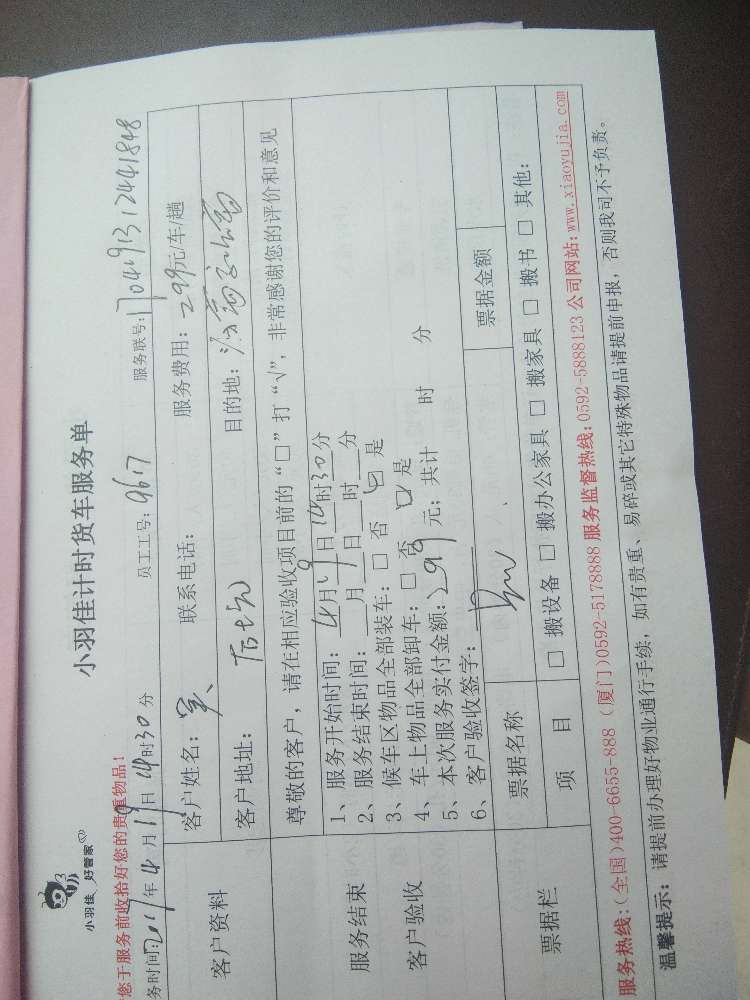 小羽佳 好管家
小羽佳计时货车服务单
您于服务前收拾好您的贵重物品!
务时间:2017年4月19日14时30分 员工工号:9617 服务联号:1704191312441848
客户资料
客户姓名: 联系电话: 服务费用:299元/车/趟
客户地址: 目的地:
尊敬的客户,请在相应验收项目前的“口”打“√”,非常感谢您的评价和意见
服务结束
客户验收
1、服务开始时间:4月19日14时30分
2、服务结束时间: 月 日 时 分
3、候车区物品全部装车:□ 否 □ 是
4、车上物品全部卸车:□ 否 □ 是
5、本次服务实付金额:299元;共计 时 分
6、客户验收签字:
票据栏
票据名称 票据金额
项 目 □ 搬设备 □ 搬办公家具 □ 搬家具 □ 搬书 □ 其他:
服务热线:(全国)400-6655-888 (厦门)0592-5178888 服务监督热线:0592-5888123 公司网站:www.xiaoyujia.com
温馨提示:请提前办理好物业通行手续,如有贵重、易碎或其它特殊物品请提前申报,否则我司不予负责。